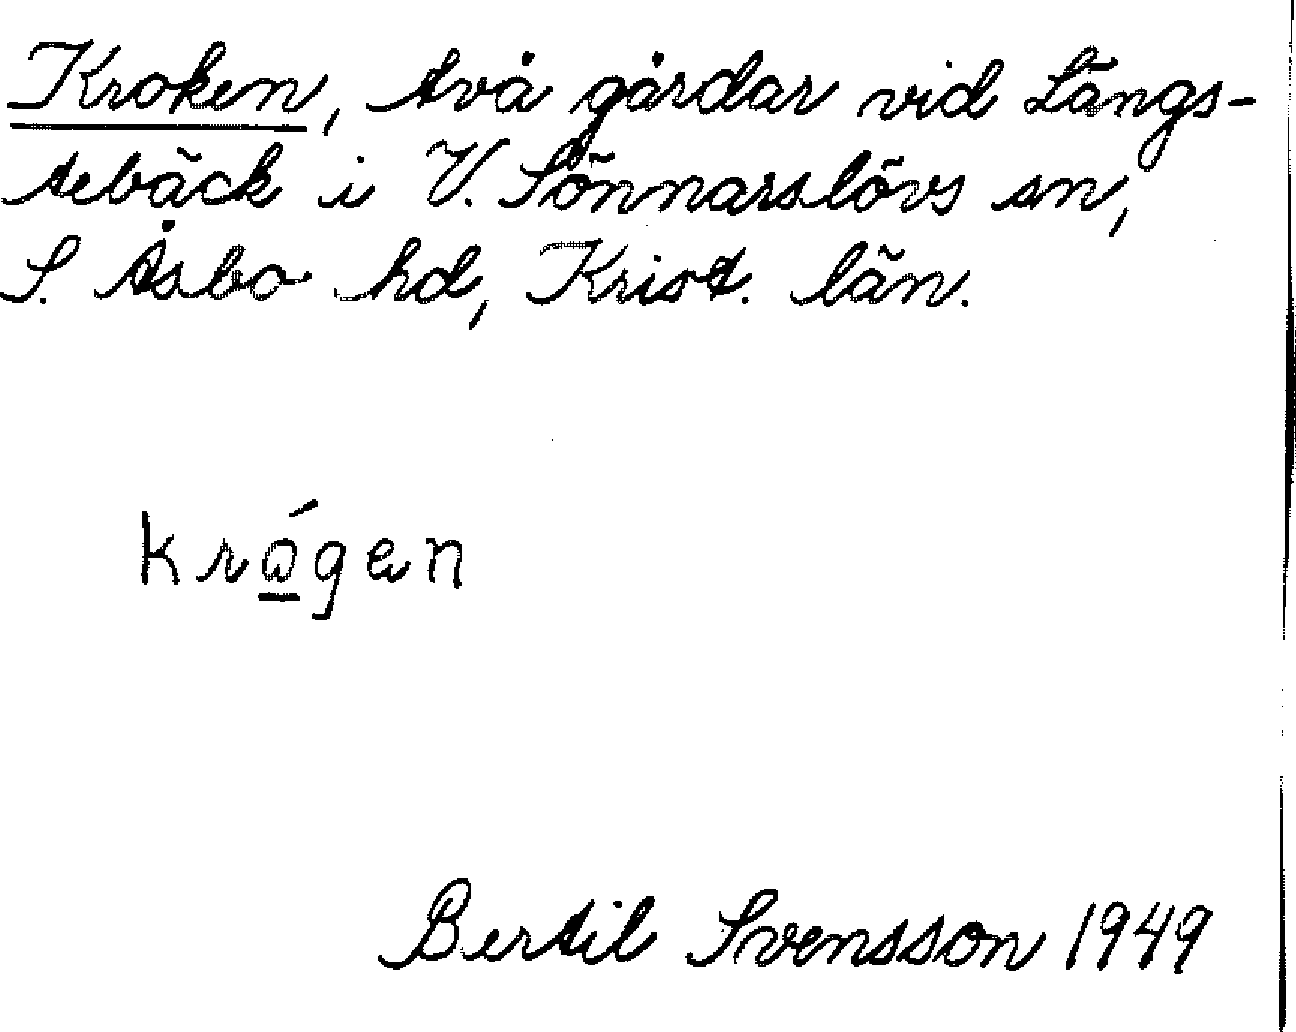 Kroken, två gårdar vid Längs-
tebäck i V. Sönnarslövs sn,
S. Åsbo hd, Krist. län.
krǫ́gen
Bertil Svensson 1949